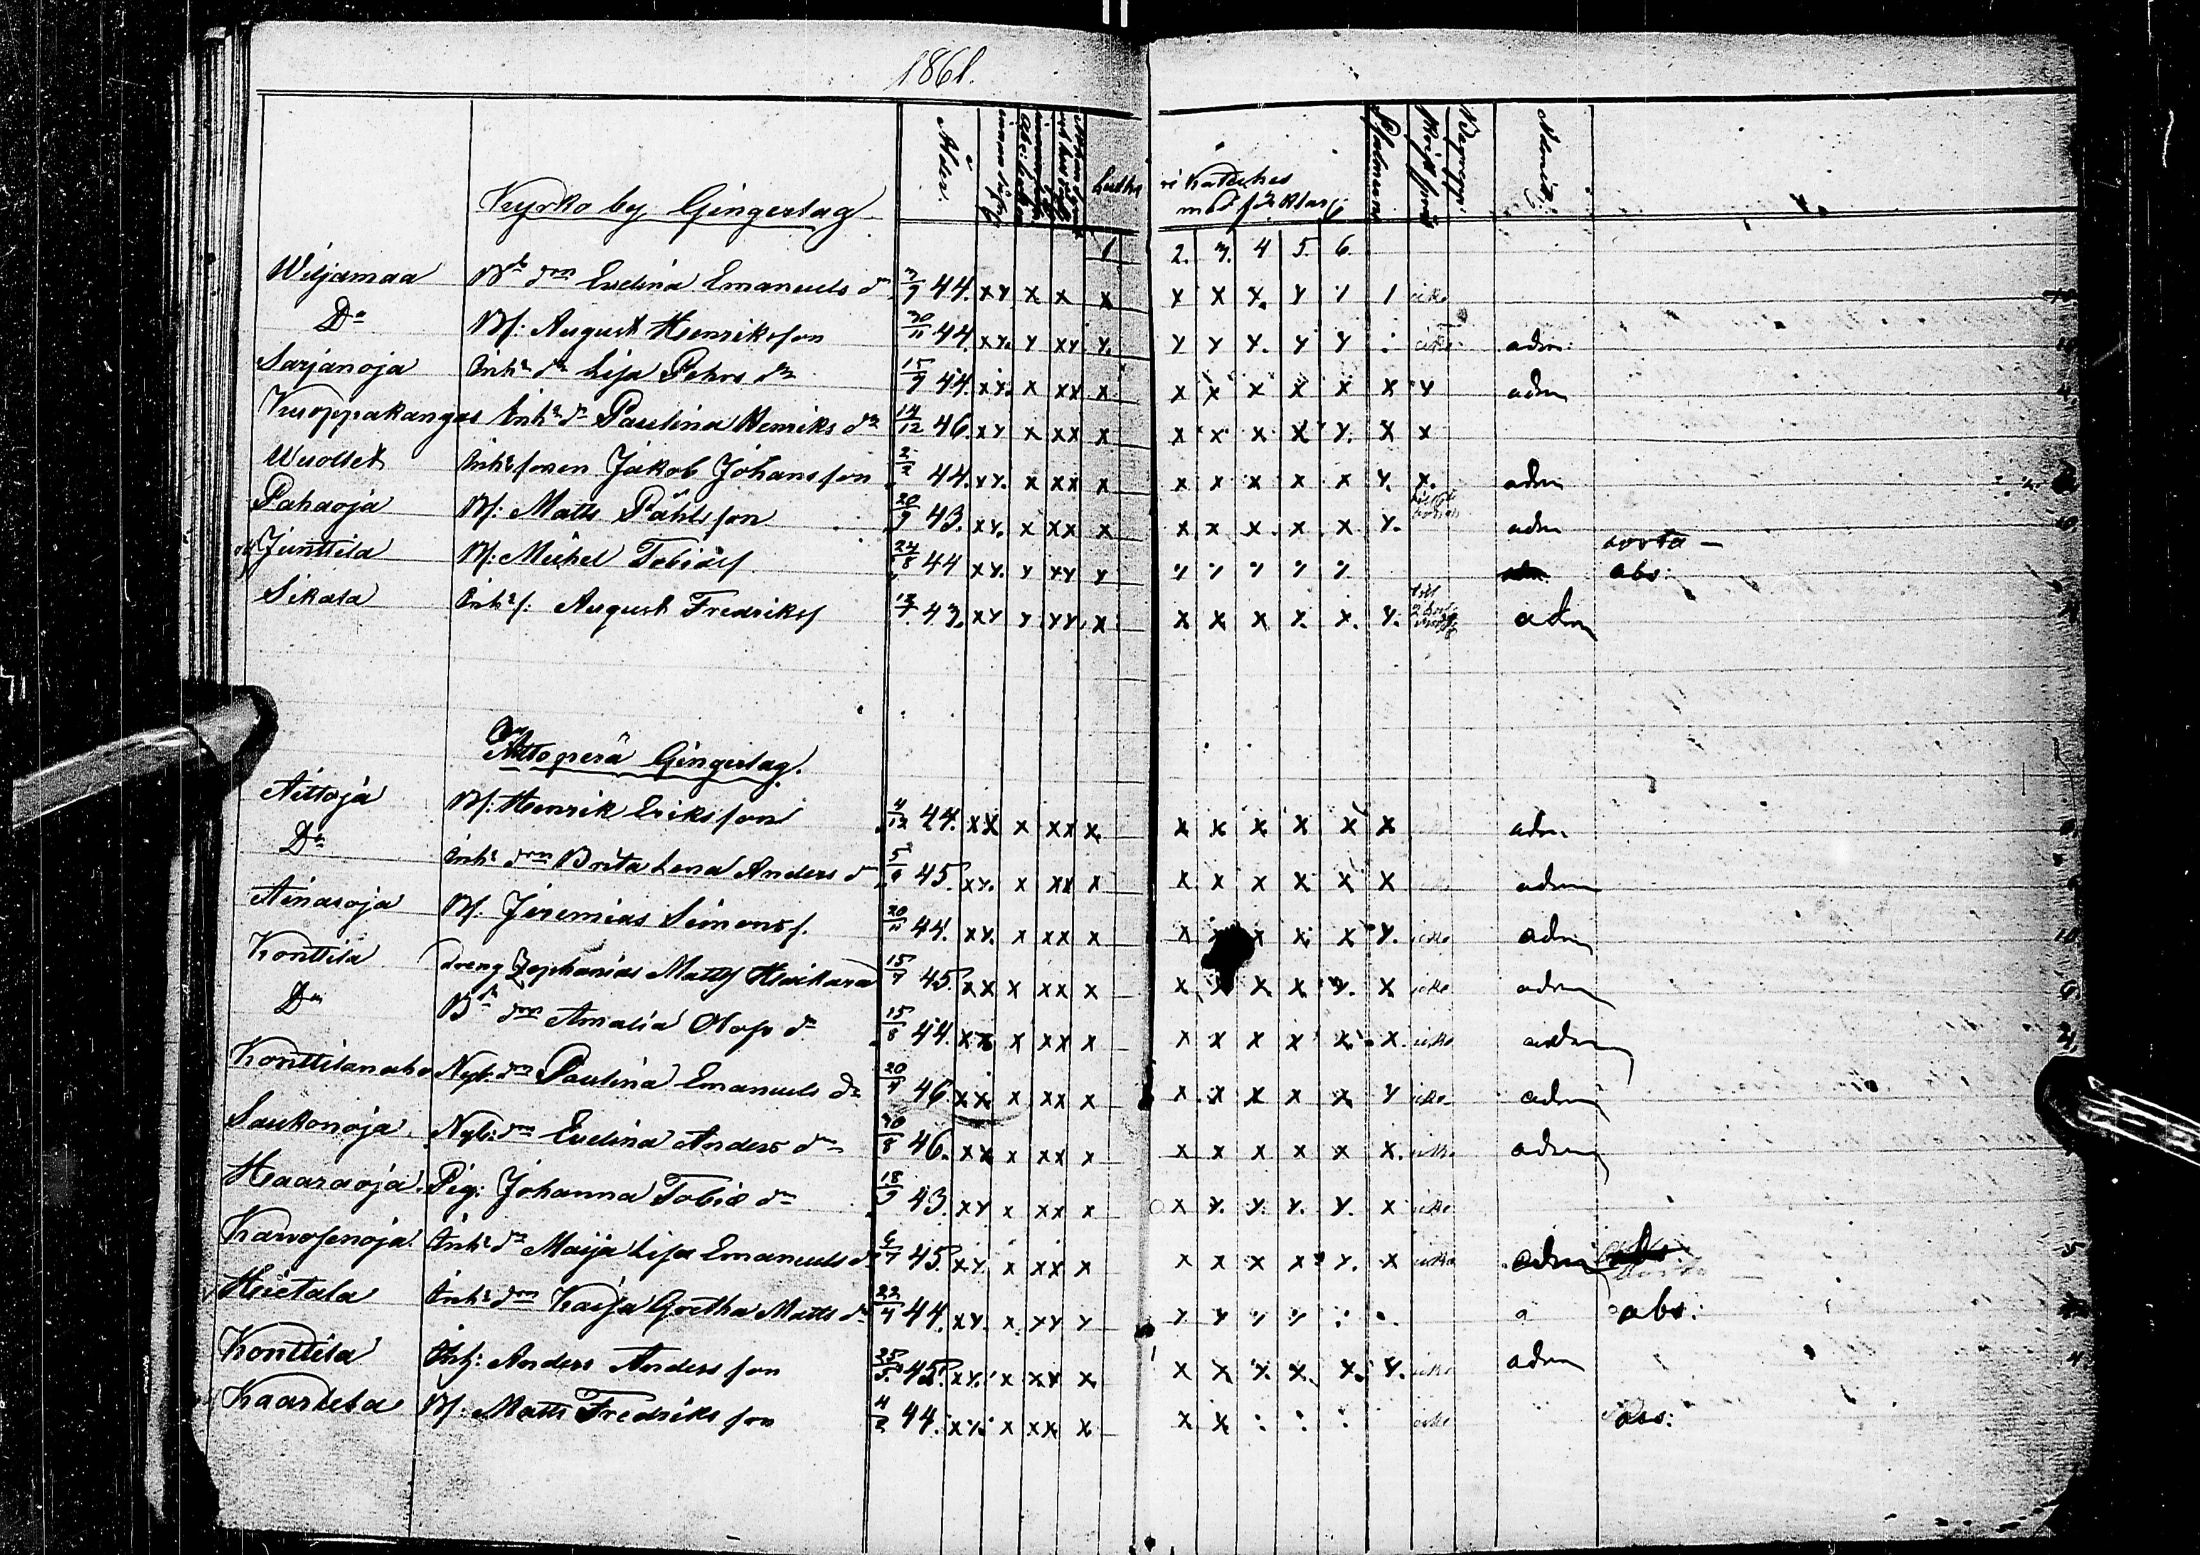 1861.
Kyrko by Gingerlag
Ålder.
Luthe ri Kateches
med förklar:
Psalmerne
Begrepp
Admit:
1 2. 3. 4 5. 6.
Wiljamaa Bde dn Eudina Emanuels dr 3/9 44. xy x x x y x x. y y 1 icke
Do Bs: August Henriksson 30/11 44. xy. y xy y. y y y. y y : icke adm:
Sarjanoja Inhs dr Lisa Pehrs dr 15/9 44. xx. x xx x x x x x x x y adm
Kuoppakangas Inhs dr Paulina Henriks dr 14/12 46. xy x xx x x x x x y. x x
Wuollet Inhs sonen Jakob Johansson 2/2 44. xy. x xx x x x x x x y. x. adm
Pahaoja Bs: Matts Påhlsson 20/9 43. xy. x xx x x x x. x. x y. adm
Junttila Bs: Michel Tobiæs 24/8 44 xy. y xy y y y y y y borta — abs:
Sikala Inhs s: August Fredriks 12/7 43. xy y yy x x x x y. x. y. adm
Aittoperä Gingerlag.
Aittoja Bs: Henrik Eriksson 4/12 44. xx x xx x x x x x x x adm
Do Inhs drn Brita Lena Anders dr 5/9 45. xy. x xx x x. x x x x x adm
Ainasoja Bs. Jeremias Simons s. 20/11 44. xy. x xx x x x x x. x y. icke adm
Konttila dreng Zephanias Matts Haikara 15/7 45. xx x xx x x x x. x y. x icke adm
Do Bde drn Amalia Olofs dr 15/8 44. xx x xx x x x x x x. x. icke adm
Konttilanaho Nyb: drn Paulina Emanuels dr 20/7 46 xx x xx x x x x x x y icke adm
Saukonoja Nyb: drn Eudina Anders dr 30/8 46. xx x xx x x x x x x x. icke adm
Haaraoja. Pig: Johanna Tobiæ dr 18/9 43. xy x xx x x y. y. y. y. x icke
Karvosenoja. Inhs dr Maija Lisa Emanuels dr 6/7 45. xy. x xx x x x x x y. x icke adm
Hietala Inhs drn Kaisa Gretha Matts dr 22/4 44. xy. x. yy y y y y y : . a abs:
Konttila Inhs: Anders Andersson 25/5 45. xy. x xy x. x x. y. x. x. y. icke adm
Kaartela Bs: Matts Fredriksson 4/2 44. xy. x xx x x x : : : icke abs: